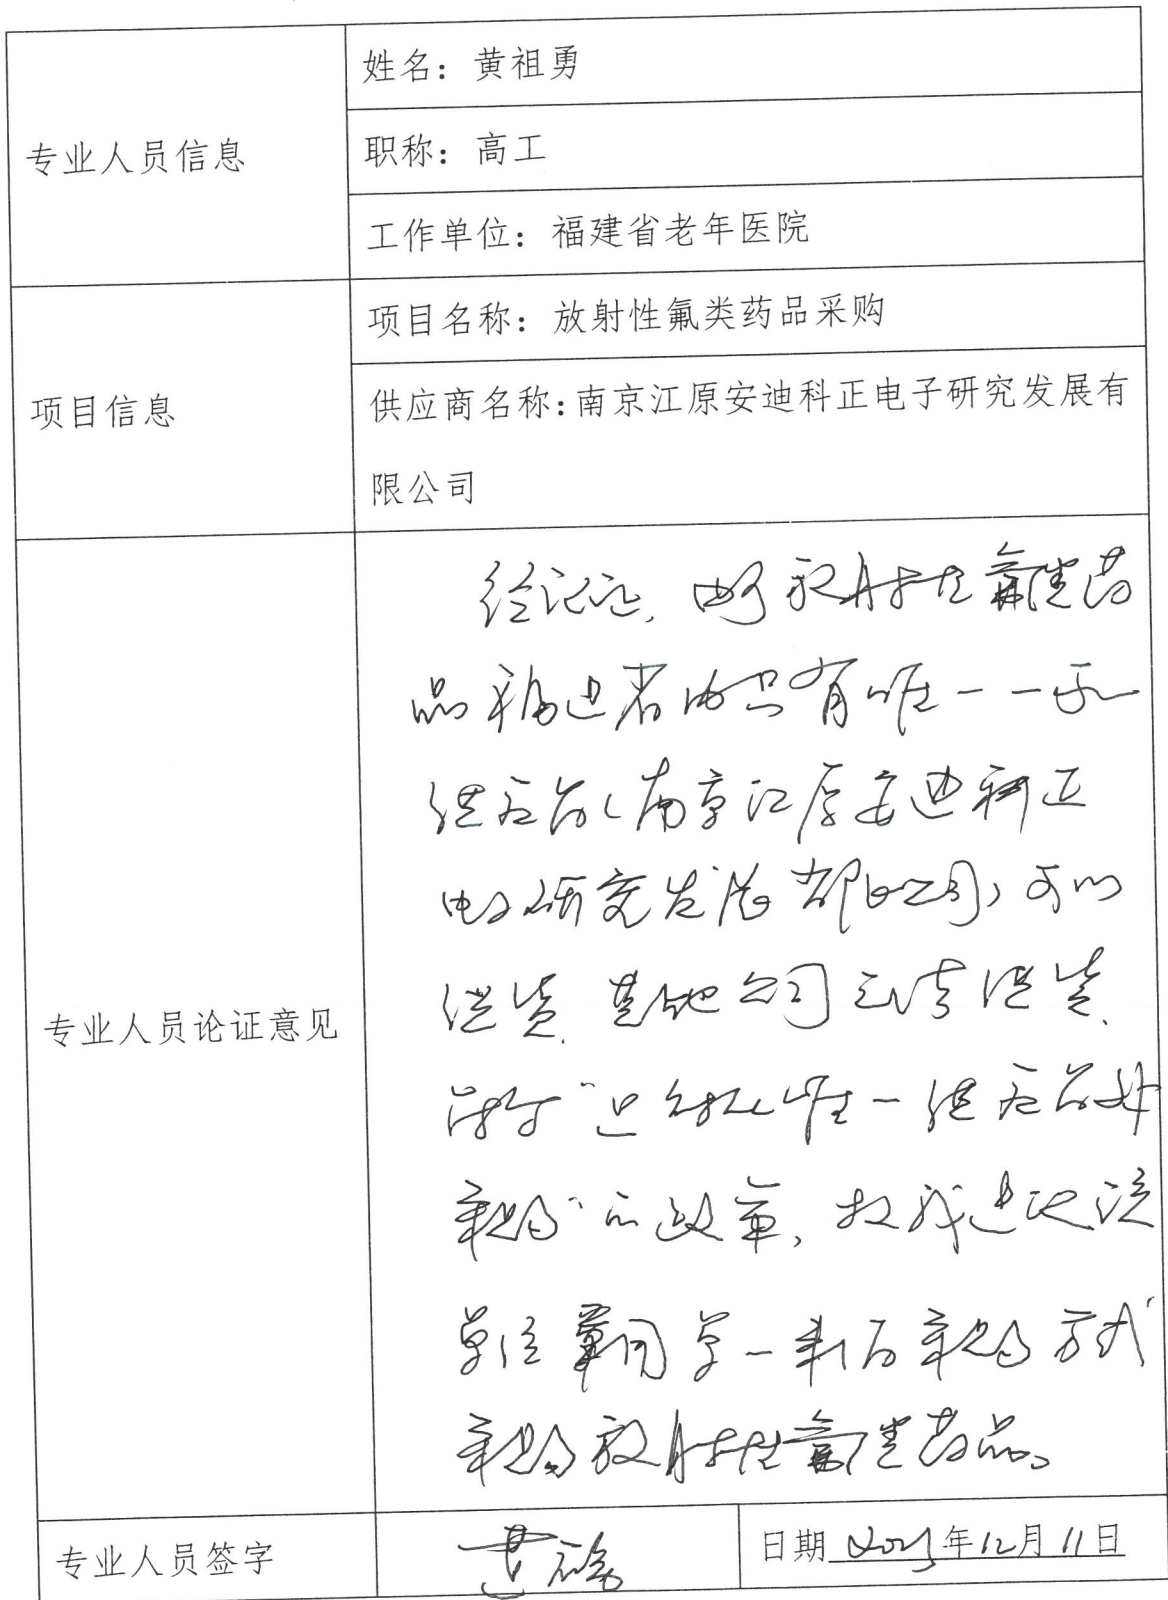 姓名：黄祖勇
专业人员信息
职称：高工
工作单位：福建省老年医院
项目名称：放射性氟类药品采购
项目信息
供应商名称：南京江原安迪科正电子研究发展有
限公司
专业人员论证意见
经论证，由于放射性氟类药
品福建省内只有唯一一家
供应商（南京江原安迪科正
电子研究发展有限公司）可以
供货，其他公司无法供货，
符合“只能从唯一供应商处
采购”的政策，故我建议该
单位采用单一来源采购方式
采购放射性氟类药品。
专业人员签字
黄祖勇
日期 2025年12月11日